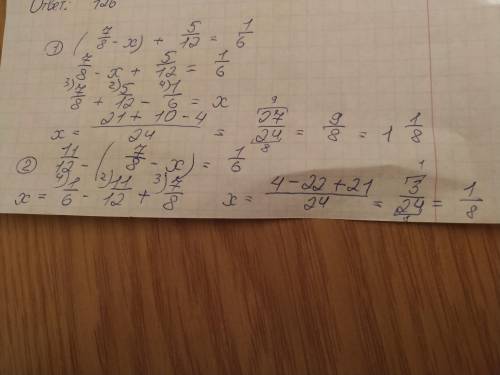 Ответ: 126
① (7/8 - x) + 5/12 = 1/6
7/8 - x + 5/12 = 1/6
3) 7/8 + 2) 5/12 - 4) 1/6 = x
x = (21 + 10 - 4)/24 = 27 9/24 8 = 9/8 = 1 1/8
② 11/12 - (7/8 - x) = 1/6
x = 4) 1/6 - 2) 11/12 + 3) 7/8 x = (4 - 22 + 21)/24 = 3 1/24 8 = 1/8